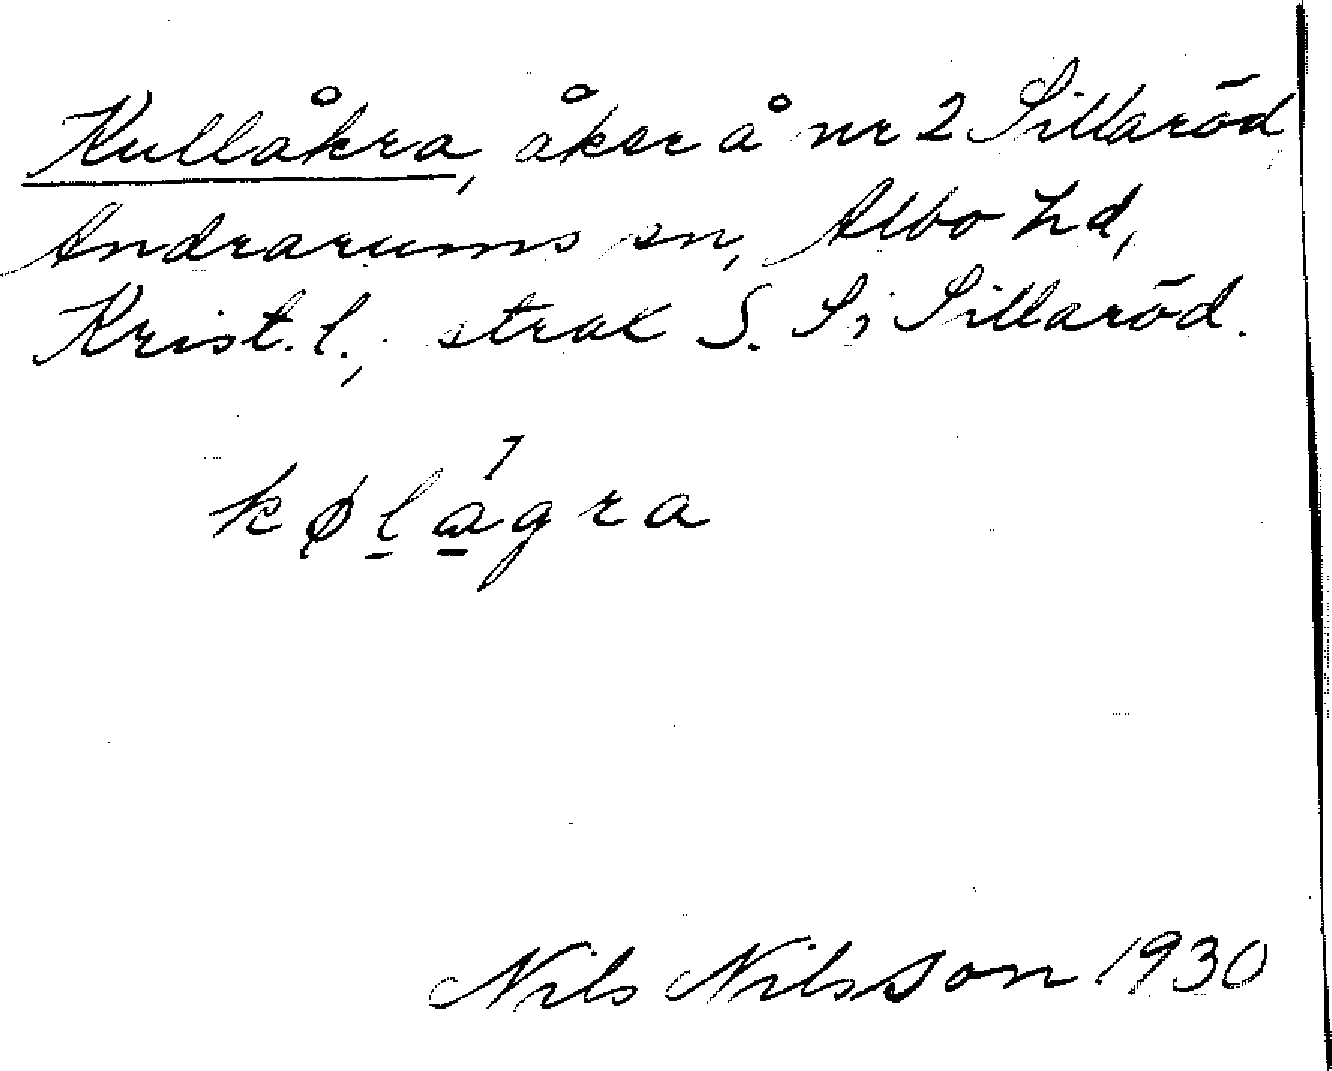 Kullåkra, åker å nr 2 Sillaröd,
Andrarums sn, Albo hd,
Krist. l., strax S. S; Sillaröd.
køḻa̱gra
Nils Nilsson 1930